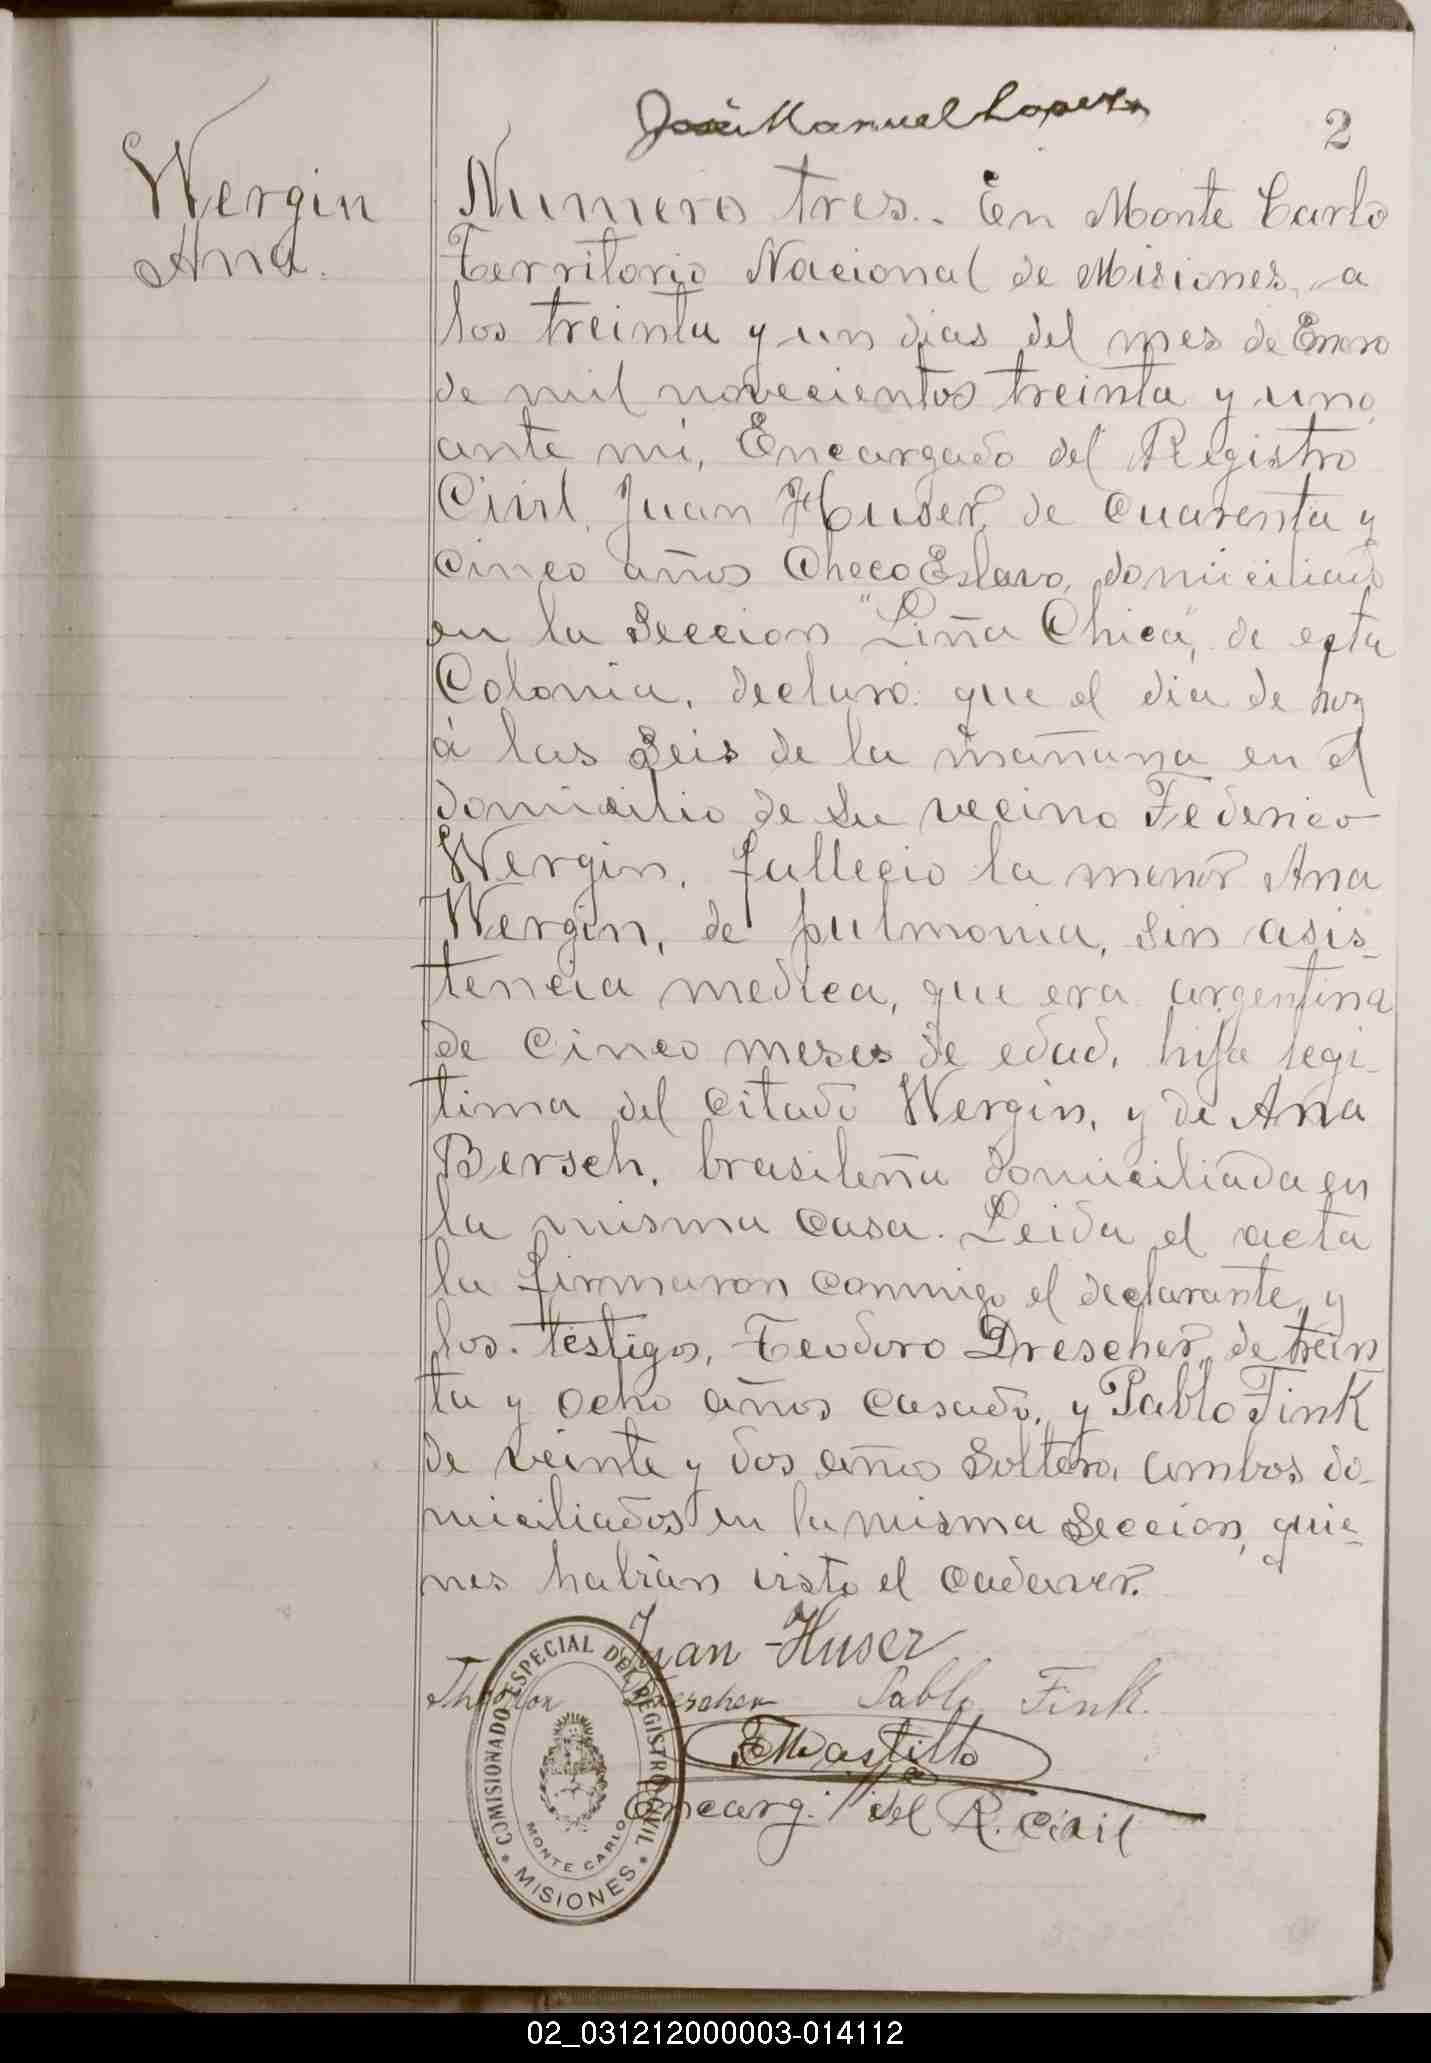 José Manuel Lopez
2
Wergin
Ana.
Numero tres.. En Monte Carlo
Territorio Nacional de Misiones, a
los treinta y un dias del mes de Enero
de mil novecientos treinta y uno,
ante mi, Encargado del Registro
Civil, Juan Huser, de cuarenta y
cinco años ChecoEslavo, domiciliado
en la Seccion "Liña Chica", de esta
Colonia, declaró: que el dia de hoy
á las seis de la mañana en el
domicilio de su vecino Federico
Wergin, fallecio la menor Ana
Wergin, de pulmonia, sin asis-
tencia medica, que era argentina
de cinco meses de edad, hija legi-
tima del citado Wergin, y de Ana
Bersch, brasileña domiciliada en
la misma casa. Leida el acta
la firmaron conmigo el declarante, y
los testigos, Teodoro Drescher, de trein
ta y ocho años casado, y Pablo Fink
de veinte y dos años soltero, ambos do-
miciliados en la misma seccion, quie-
nes habian visto el cadaver.
Juan Huser
Theodor Drescher Pablo Fink.
Castillo
Encarg. del R. Civil
COMISIONADO ESPECIAL DEL REGISTRO CIVIL
MONTE CARLO
* MISIONES *
02_031212000003-014112